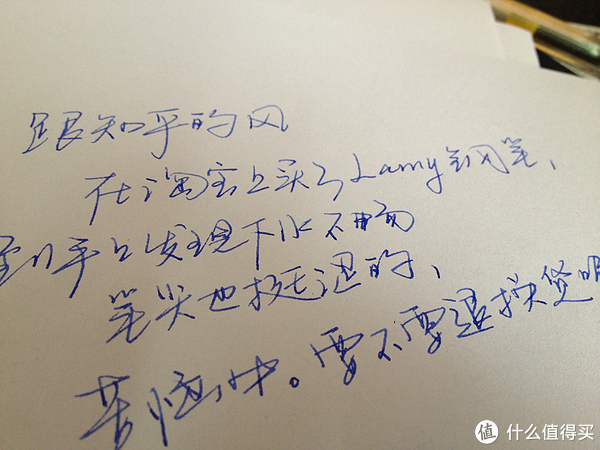 跟知乎的风
在淘宝上买了Lamy钢笔、
到手后发现下水不畅
笔尖也挺的、
苦恼中。要不要退换货呢
值 什么值得买